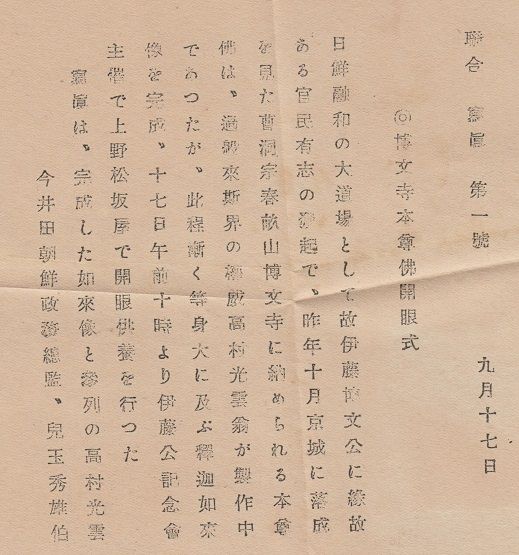 聯合 寫眞 第一號 九月十七日
◎博文寺本尊佛開眼式
日鮮融和の大道場として故伊藤博文公に緣故
ある官民有志の發起で、昨年十月京城に落成
を見た曹洞宗春畝山博文寺に納められる本尊
佛は、過般來斯界の權威高村光雲翁が製作中
であつたが、此程漸く等身大に及ぶ釋迦如來
像を完成、十七日午前十時より伊藤公記念會
主催で上野松坂屋で開眼供養を行つた
寫眞は、完成した如來像と參列の高村光雲
今井田朝鮮政務總監、兒玉秀雄伯